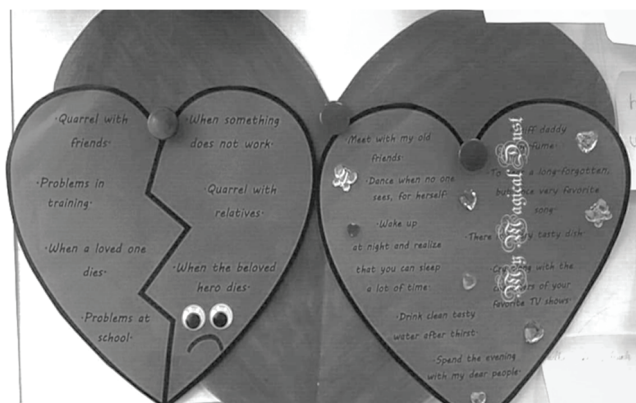 ·Quarrel with
friends·
·Problems in
training·
·When a loved one
dies·
·Problems at
school·
·When something
does not work·
·Quarrel with
relatives·
·When the beloved
hero dies·
·Meet with my old
friends·
·Dance when no one
sees, for herself·
·Wake up
at night and realize
that you can sleep
a lot of time·
·Drink clean tasty
water after thirst·
·Spend the evening
with my dear people·
daddy
a long-forgotten,
very favorite
song·
·There tasty dish·
with the
of your
favorite TV shows·
My Magical Dust